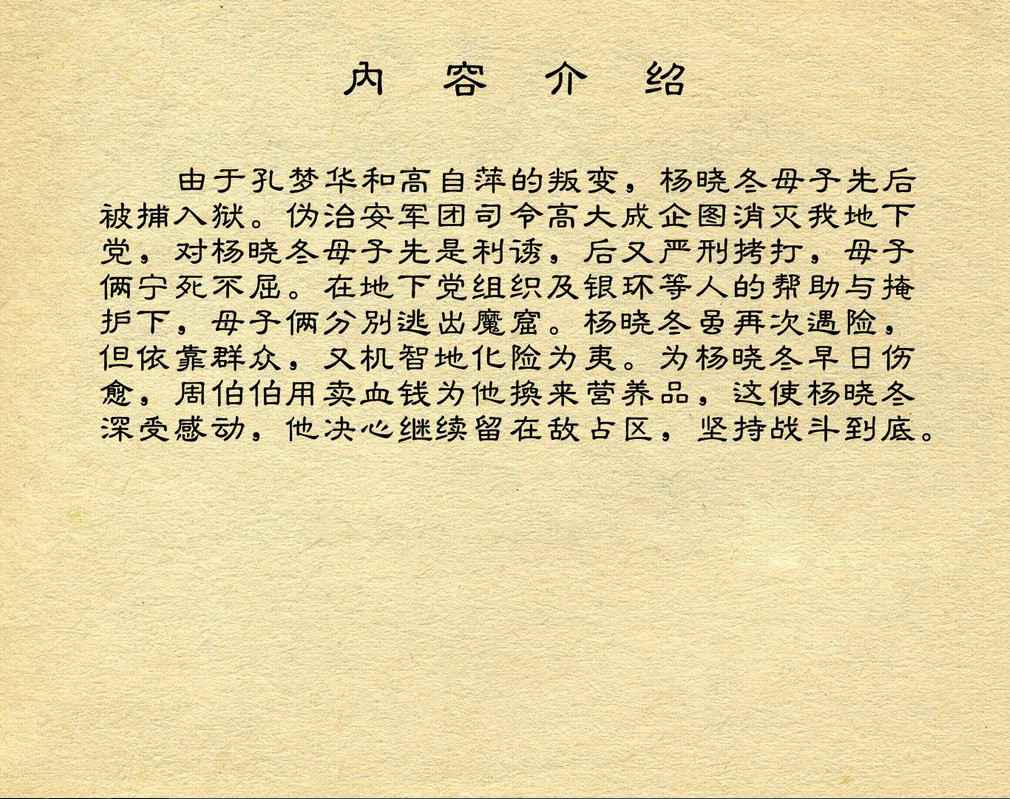 内容介绍
由于孔梦华和高自萍的叛变，杨晓冬母子先后
被捕入狱。伪治安军团司令高大成企图消灭我地下
党，对杨晓冬母子先是利诱，后又严刑拷打，母子
俩宁死不屈。在地下党组织及银环等人的帮助与掩
护下，母子俩分别逃出魔窟。杨晓冬虽再次遇险，
但依靠群众，又机智地化险为夷。为杨晓冬早日伤
愈，周伯伯用卖血钱为他换来营养品，这使杨晓冬
深受感动，他决心继续留在敌占区，坚持战斗到底。